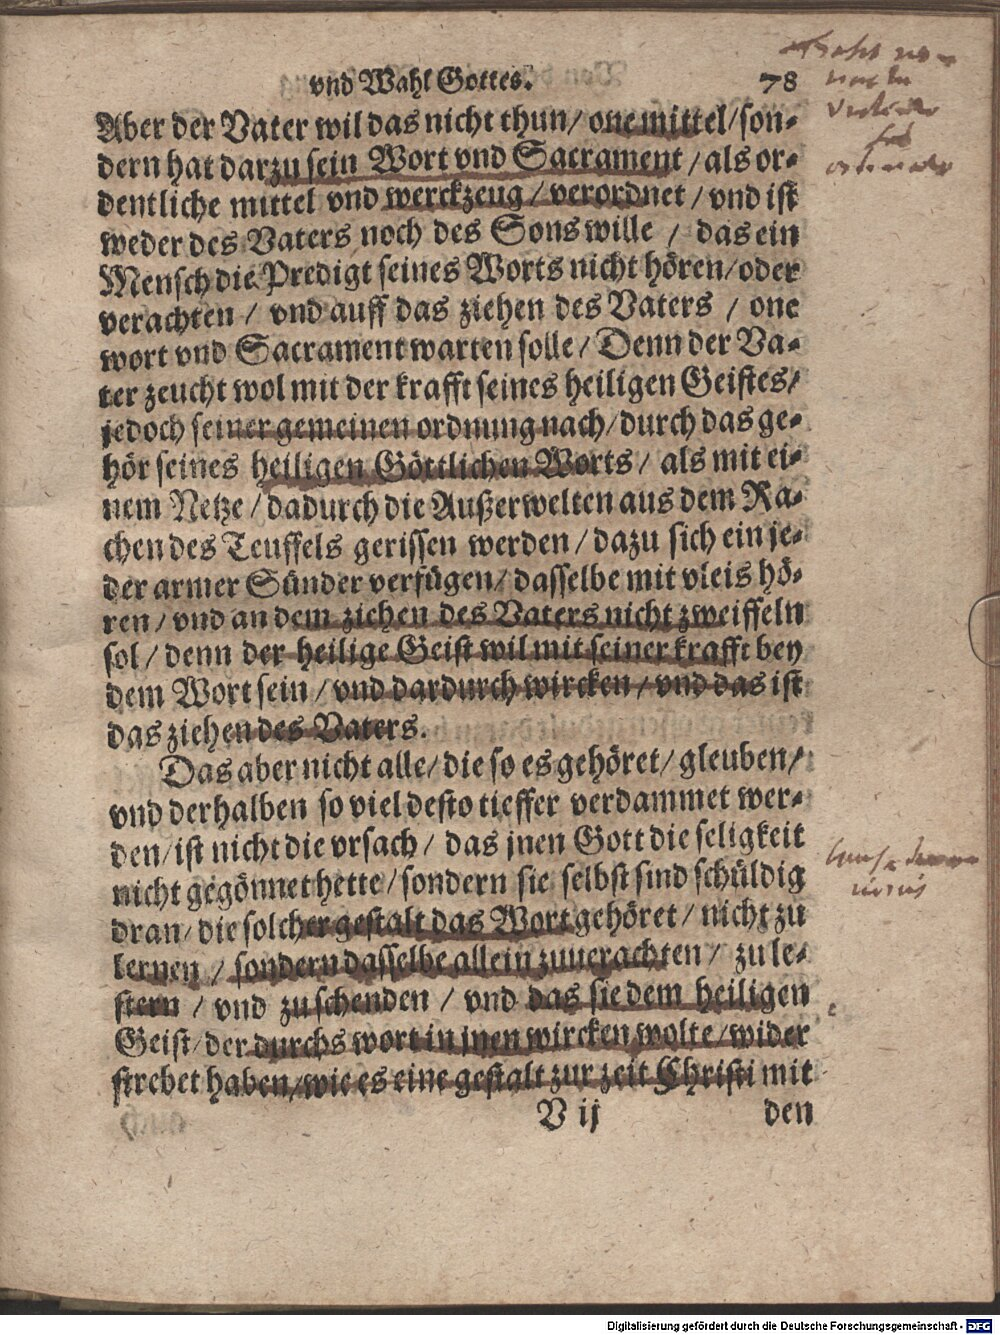 vnd Wahl Gottes. 78
Aber der Vater wil das nicht thun/ one mittel/ son-
dern hat darzu sein Wort vnd Sacrament/ als or-
dentliche mittel vnd werckzeug/ verordnet/ vnd ist
weder des Vaters noch des Sons wille/ das ein
Mensch die Predigt seines Worts nicht hören/ oder
verachten/ vnd auff das ziehen des Vaters/ one
wort vnd Sacrament warten solle/ Denn der Va-
ter zeucht wol mit der krafft seines heiligen Geistes/
jedoch seiner gemeinen ordnung nach/ durch das ge-
hör seines heiligen Göttlichen Worts/ als mit ei-
nem Netze/ dadurch die Außerwelten aus dem Ra-
chen des Teuffels gerissen werden/ dazu sich ein je-
der armer Sünder verfügen/ dasselbe mit vleis hö-
ren/ vnd an dem ziehen des Vaters nicht zweiffeln
sol/ denn der heilige Geist wil mit seiner krafft bey
dem Wort sein/ vnd dardurch wircken/ vnd das ist
das ziehen des Vaters.
Das aber nicht alle/ die so es gehöret/ gleuben/
vnd derhalben so viel desto tieffer verdammet wer-
den/ ist nicht die vrsach/ das jnen Gott die seligkeit
nicht gegönnet hette/ sondern sie selbst sind schüldig
dran/ die solcher gestalt das Wort gehöret/ nicht zu
lernen/ sondern dasselbe allein zuuerachten/ zu le-
stern/ vnd zu schenden/ vnd das sie dem heiligen
Geist/ der durchs wort in jnen wircken wolte/ wider
strebet haben/ wie es eine gestalt zur zeit Christi mit
V ij den
Digitalisierung gefördert durch die Deutsche Forschungsgemeinschaft - DFG